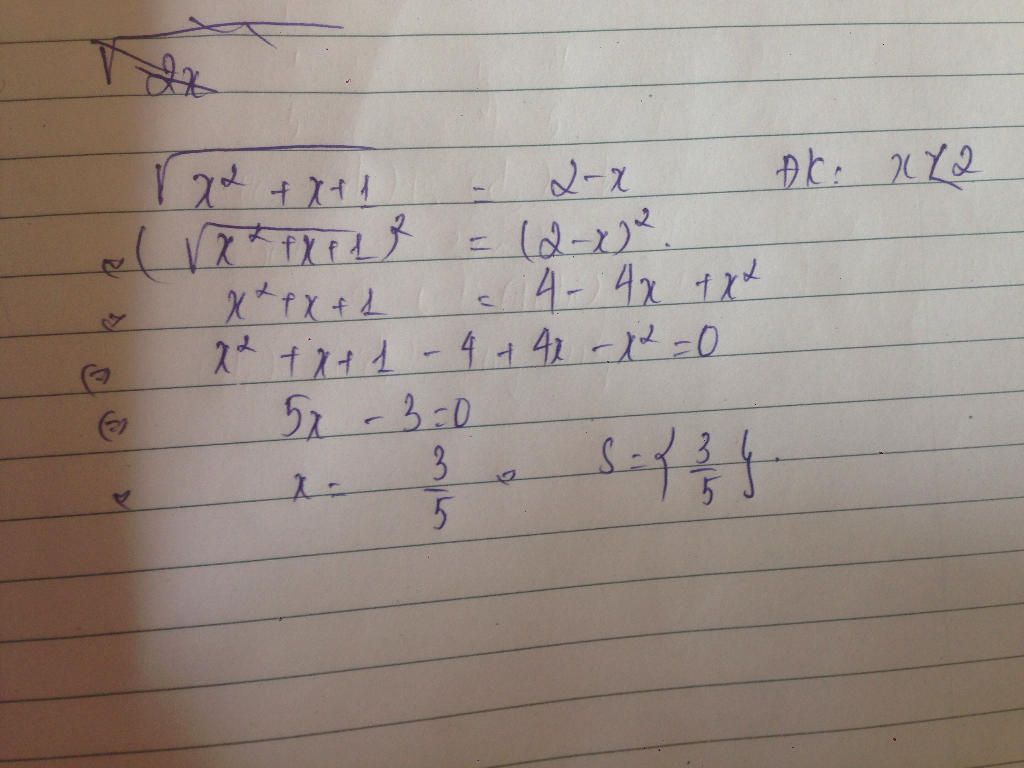 √2x
√(x² + x + 1) = 2 - x ĐK: x ≤ 2
⇔ (√(x² + x + 1))² = (2 - x)².
⇔ x² + x + 1 = 4 - 4x + x²
⇔ x² + x + 1 - 4 + 4x - x² = 0
⇔ 5x - 3 = 0
⇔ x = 3/5 ⇒ S = {3/5}.